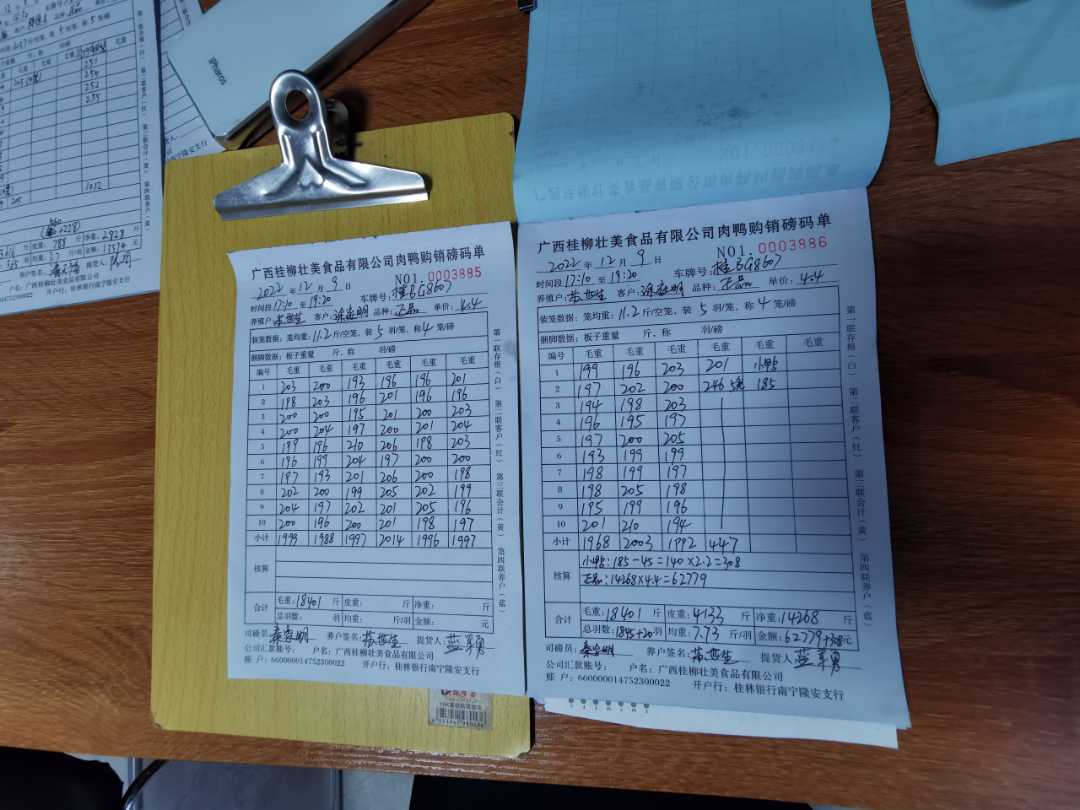 iphoros
251
254
252
255
1012
广西桂柳壮美食品有限公司肉鸭购销磅码单
2022 年 12 月 9 日 NO1. 0003885
时间段 17:10 至 19:20 车牌号: 桂6G8607
养殖户: 客户: 品种: 正品 单价: 4.4
装笼数据: 笼均重: 11.2 斤/空笼, 装 5 羽/笼, 称 4 笼/磅
捆脚数据: 板子重量 斤, 称 羽/磅
编号 毛重 毛重 毛重 毛重 毛重 毛重
1 203 200 193 196 196 201
2 198 203 196 201 196 196
3 200 200 195 201 200 203
4 200 204 197 200 201 204
5 199 196 210 206 198 203
6 196 199 204 197 200 200
7 197 193 201 206 200 198
8 202 200 199 205 202 199
9 204 197 202 201 205 196
10 200 196 200 201 198 197
小计 1999 1988 1997 2014 1996 1997
核算
合计 毛重: 18401 斤 皮重: 斤 净重: 斤
总羽数: 羽 均重: 斤/羽 金额: 元
司磅员: 养户签名: 提货人: 蓝军勇
公司汇款账号: 户名: 广西桂柳壮美食品有限公司
账 户: 660000014752300022 开户行: 桂林银行南宁隆安支行
第一联存根(白) 第二联客户(红) 第三联会计(黄) 第四联养户(蓝)
广西桂柳壮美食品有限公司肉鸭购销磅码单
2022 年 12 月 9 日 NO1. 0003886
时间段 17:10 至 19:20 车牌号: 桂6G8607
养殖户: 客户: 品种: 正品 单价: 4.4
装笼数据: 笼均重: 11.2 斤/空笼, 装 5 羽/笼, 称 4 笼/磅
捆脚数据: 板子重量 斤, 称 羽/磅
编号 毛重 毛重 毛重 毛重 毛重 毛重
1 199 196 203 201 小鸭
2 197 202 200 246 5笼 185
3 194 198 203
4 196 195 197
5 197 200 205
6 193 199 199
7 198 199 197
8 198 205 198
9 195 199 196
10 201 210 194
小计 1968 2003 1992 447
核算 小鸭: 185-45=140×2.2=308
正品: 14268×4.4=62779
合计 毛重: 18401 斤 皮重: 4133 斤 净重: 14268 斤
总羽数: 1845+20 羽 均重: 7.73 斤/羽 金额: 62779+308 元
司磅员: 养户签名: 提货人 蓝军勇
公司汇款账号: 户名: 广西桂柳壮美食品有限公司
账 户: 660000014752300022 开户行: 桂林银行南宁隆安支行
第一联存根(白) 第二联客户(红) 第三联会计(黄) 第四联养户(蓝)